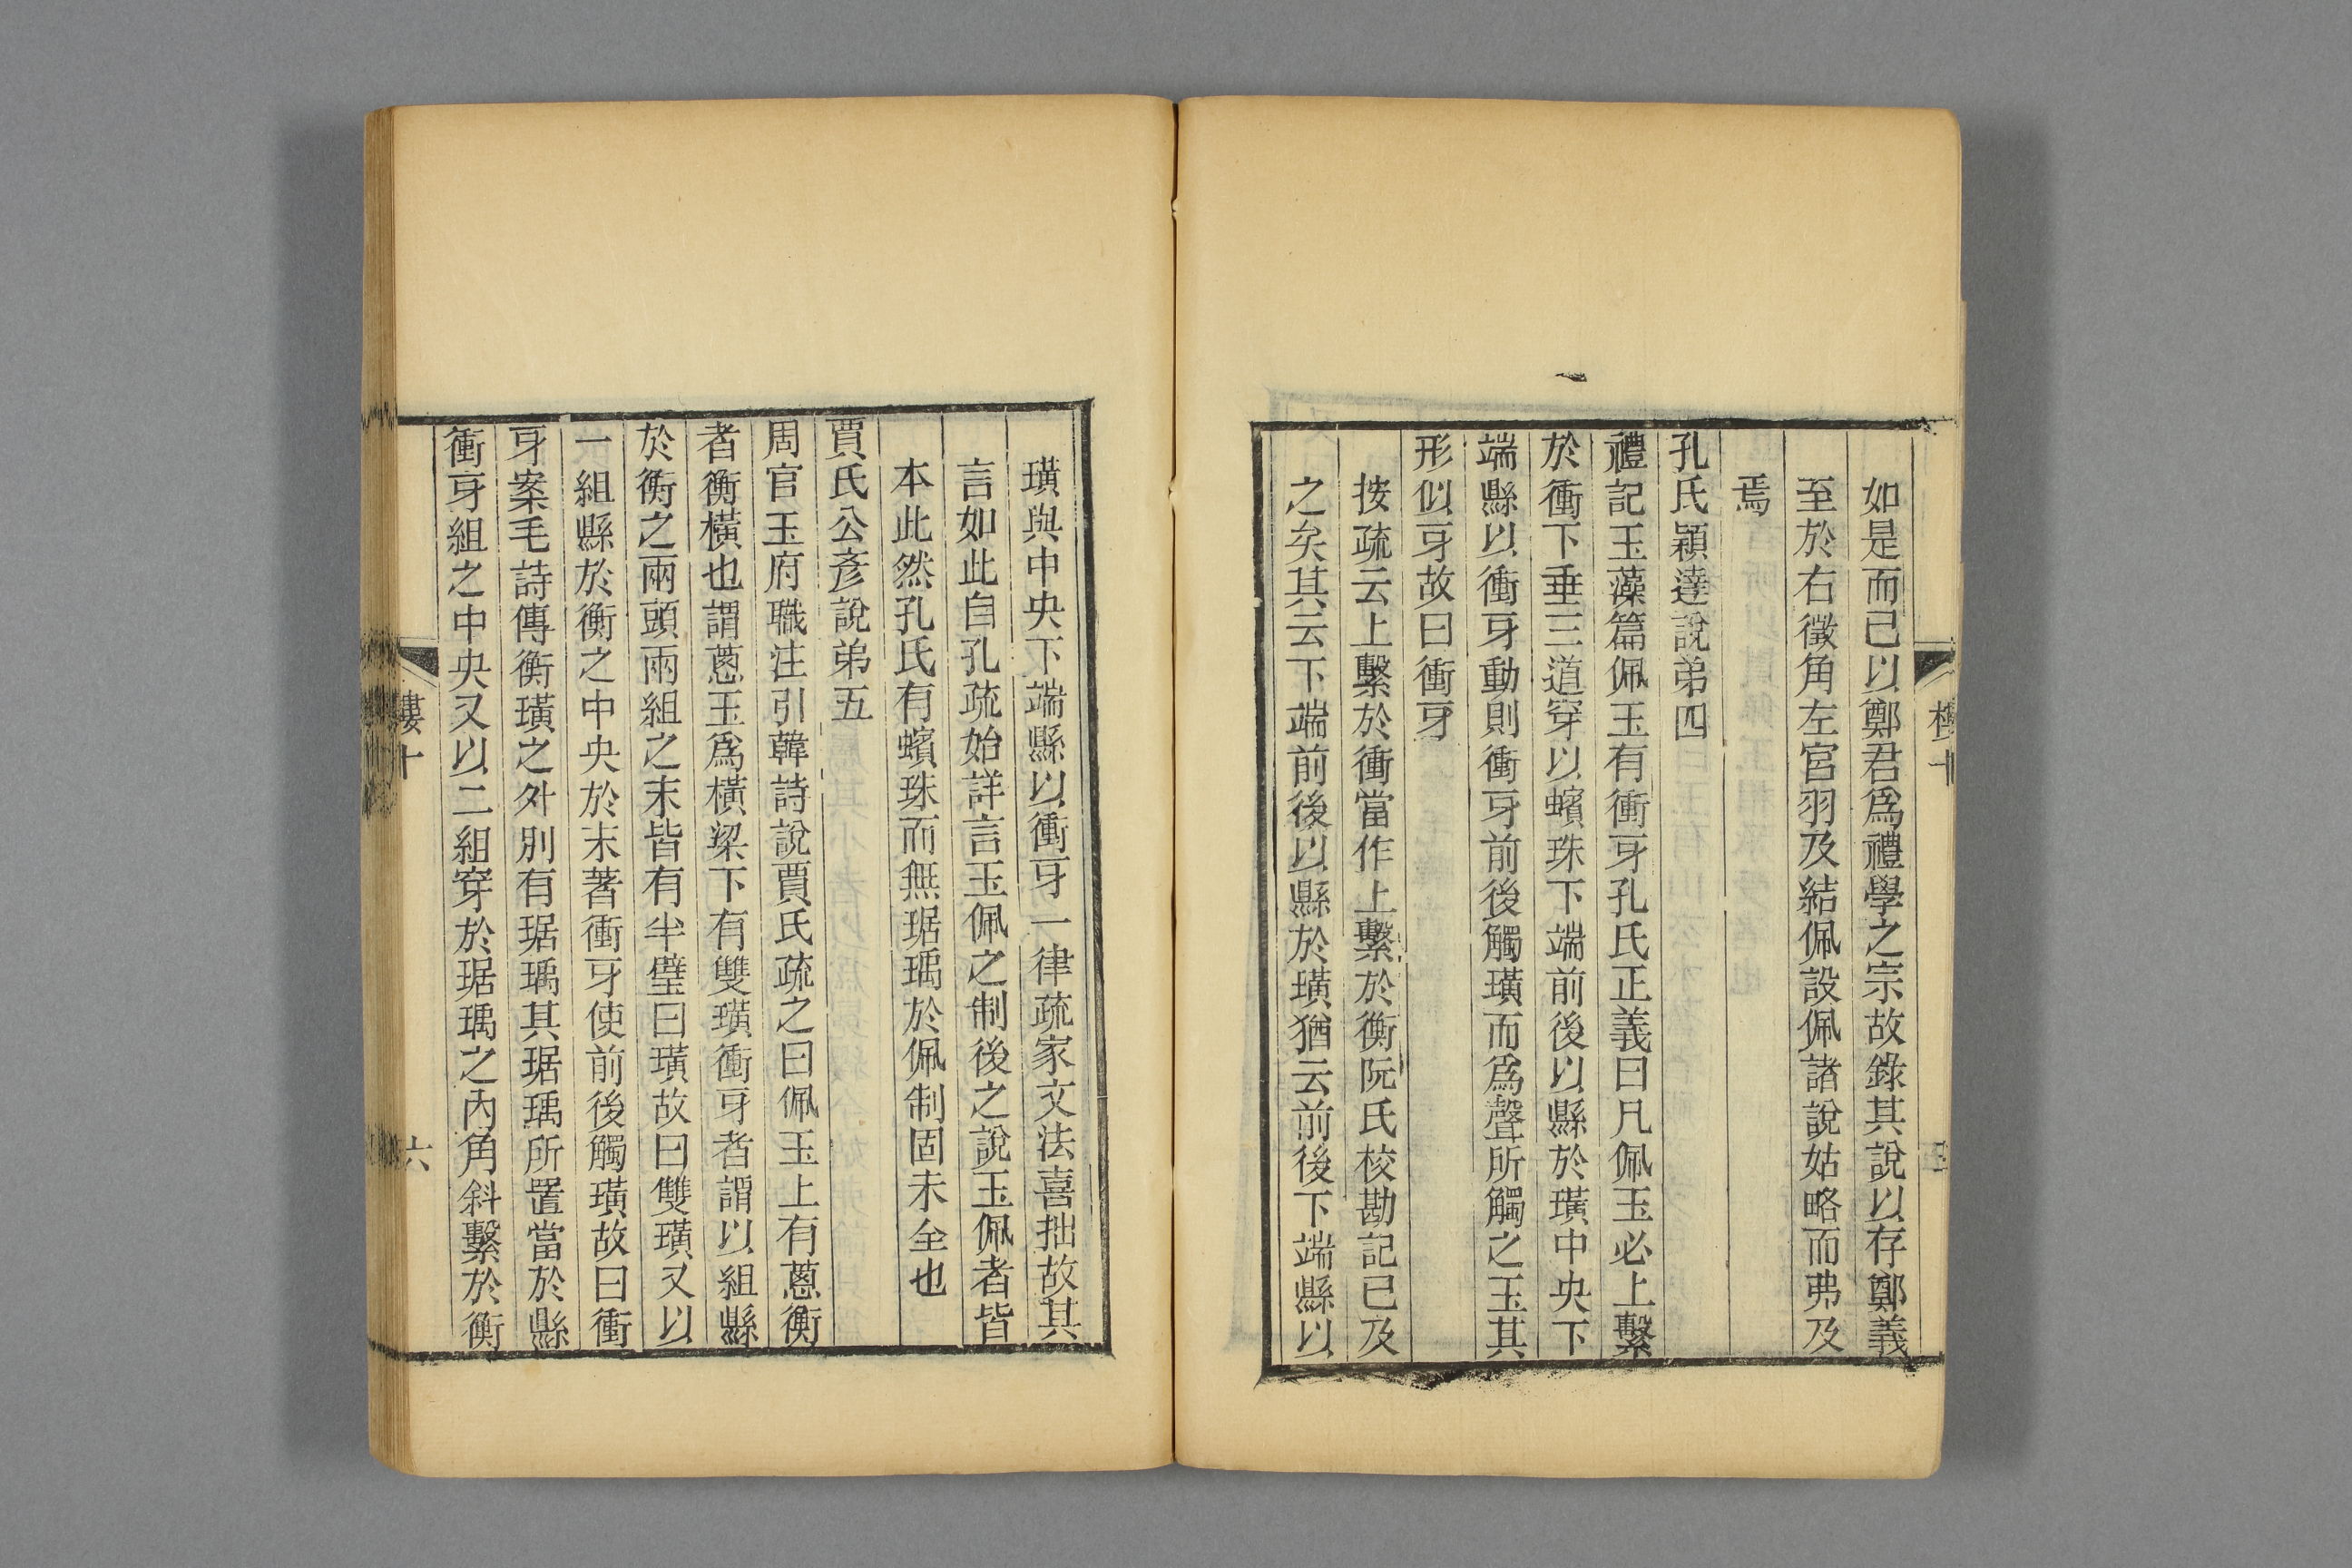 如是而已以鄭君爲禮學之宗故錄其說以存鄭義
至於右徵角左宮羽及結佩設佩諸說姑略而弗及
焉
孔氏穎達說弟四
禮記玉藻篇佩玉有衝牙孔氏正義曰凡佩玉必上繫
於衝下垂三道穿以蠙珠下端前後以縣於璜中央下
端縣以衝牙動則衝牙前後觸璜而爲聲所觸之玉其
形似牙故曰衝牙
按疏云上繫於衝當作上繫於衡阮氏校勘記已及
之矣其云下端前後以縣於璜猶云前後下端縣以
璜與中央下端縣以衝牙一律疏家文法喜拙故其
言如此自孔疏始詳言玉佩之制後之說玉佩者皆
本此然孔氏有蠙珠而無琚瑀於佩制固未全也
賈氏公彥說弟五
周官玉府職注引韓詩說賈氏疏之曰佩玉上有蔥衡
者衡橫也謂蔥玉爲橫梁下有雙璜衝牙者謂以組縣
於衡之兩頭兩組之末皆有半璧曰璜故曰雙璜又以
一組縣於衡之中央於末著衝牙使前後觸璜故曰衝
牙案毛詩傳衡璜之外別有琚瑀其琚瑀所置當於縣
衝牙組之中央又以二組穿於琚瑀之內角斜繫於衡
樓十
六